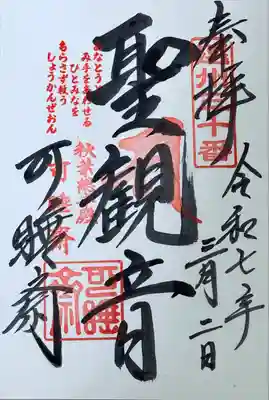 奉拝
令和七年
三月二日
聖観音
あなとうと
み手をあわせる
ひとみなを
もらさず救う
しょうかんぜおん
秋葉總本殿
可睡斎